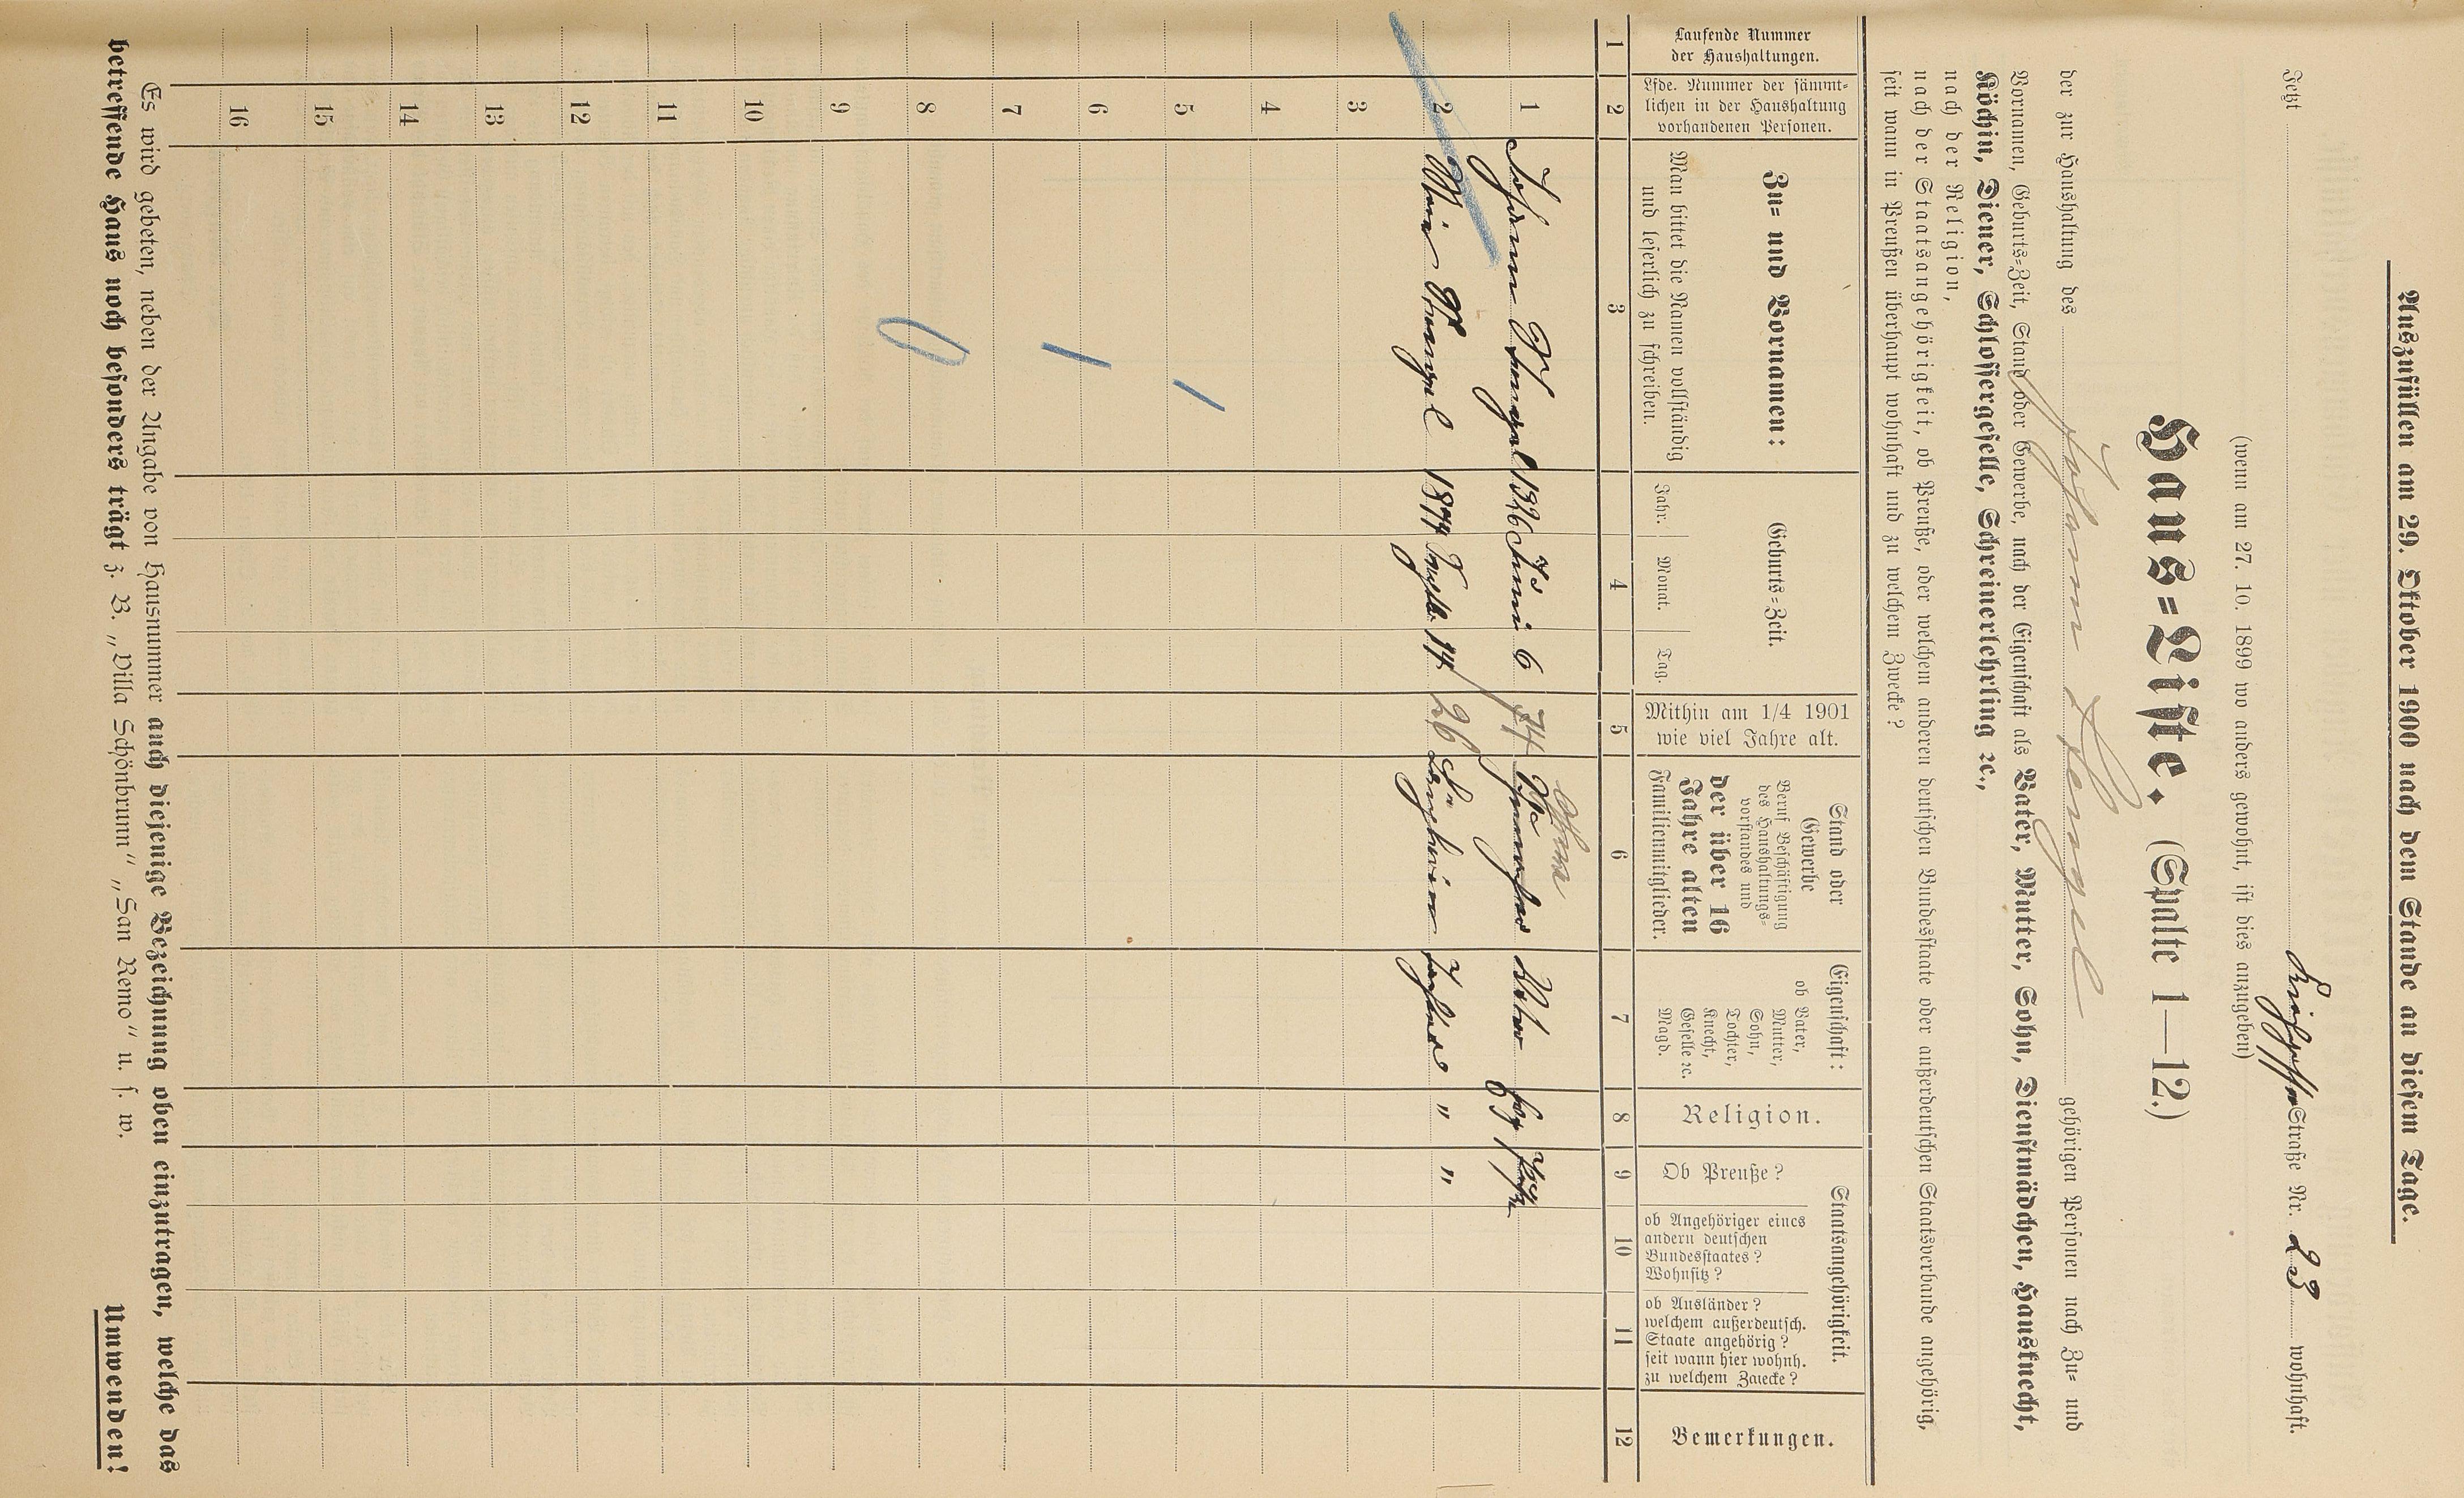 Auszufüllen am 29. Oktober 1900 nach dem Stande an diesem Tage.
Jetzt Straße Nr. 23 wohnhaft.
(wenn am 27. 10. 1899 wo anders gewohnt, ist dies anzugeben)
Haus=Liste. (Spalte 1—12.)
der zur Haushaltung des Johann gehörigen Personen nach Zu= und
Vornamen, Geburts=Zeit, Stand oder Gewerbe, nach der Eigenschaft als Vater, Mutter, Sohn, Dienstmädchen, Hausknecht,
Köchin, Diener, Schlossergeselle, Schreinerlehrling ꝛc.,
nach der Religion,
nach der Staatsangehörigkeit, ob Preuße, oder welchem anderen deutschen Bundesstaate oder außerdeutschen Staatsverbande angehörig,
seit wann in Preußen überhaupt wohnhaft und zu welchem Zwecke?
Laufende Nummer
der Haushaltungen.
Lfde. Nummer der sämmt-
lichen in der Haushaltung
vorhandenen Personen.
Zu= und Vornamen:
Man bittet die Namen vollständig
und leserlich zu schreiben.
Geburts=Zeit.
Jahr. Monat. Tag.
Mithin am 1/4 1901
wie viel Jahre alt.
Stand oder
Gewerbe
Beruf Beschäftigung
des Haushaltungs-
vorstandes und
der über 16
Jahre alten
Familienmitglieder.
Eigenschaft:
ob Vater,
Mutter,
Sohn,
Tochter,
Knecht,
Geselle ꝛc.
Magd.
Religion.
Staatsangehörigkeit.
Ob Preuße?
ob Angehöriger eines
andern deutschen
Bundesstaates?
Wohnsitz?
ob Ausländer?
welchem außerdeutsch.
Staate angehörig?
seit wann hier wohnh.
zu welchem Zwecke?
Bemerkungen.
1 2 3 4 5 6 7 8 9 10 11 12
1 Johann 1826 Juni 6 74
2 1874 14 26 Tochter " "
3
4
5
6
7
8
9
10
11
12
13
14
15
16
Es wird gebeten, neben der Angabe von Hausnummer auch diejenige Bezeichnung oben einzutragen, welche das
betreffende Haus noch besonders trägt z. B. „Villa Schönbrunn" „San Remo" u. s. w.
Umwenden!